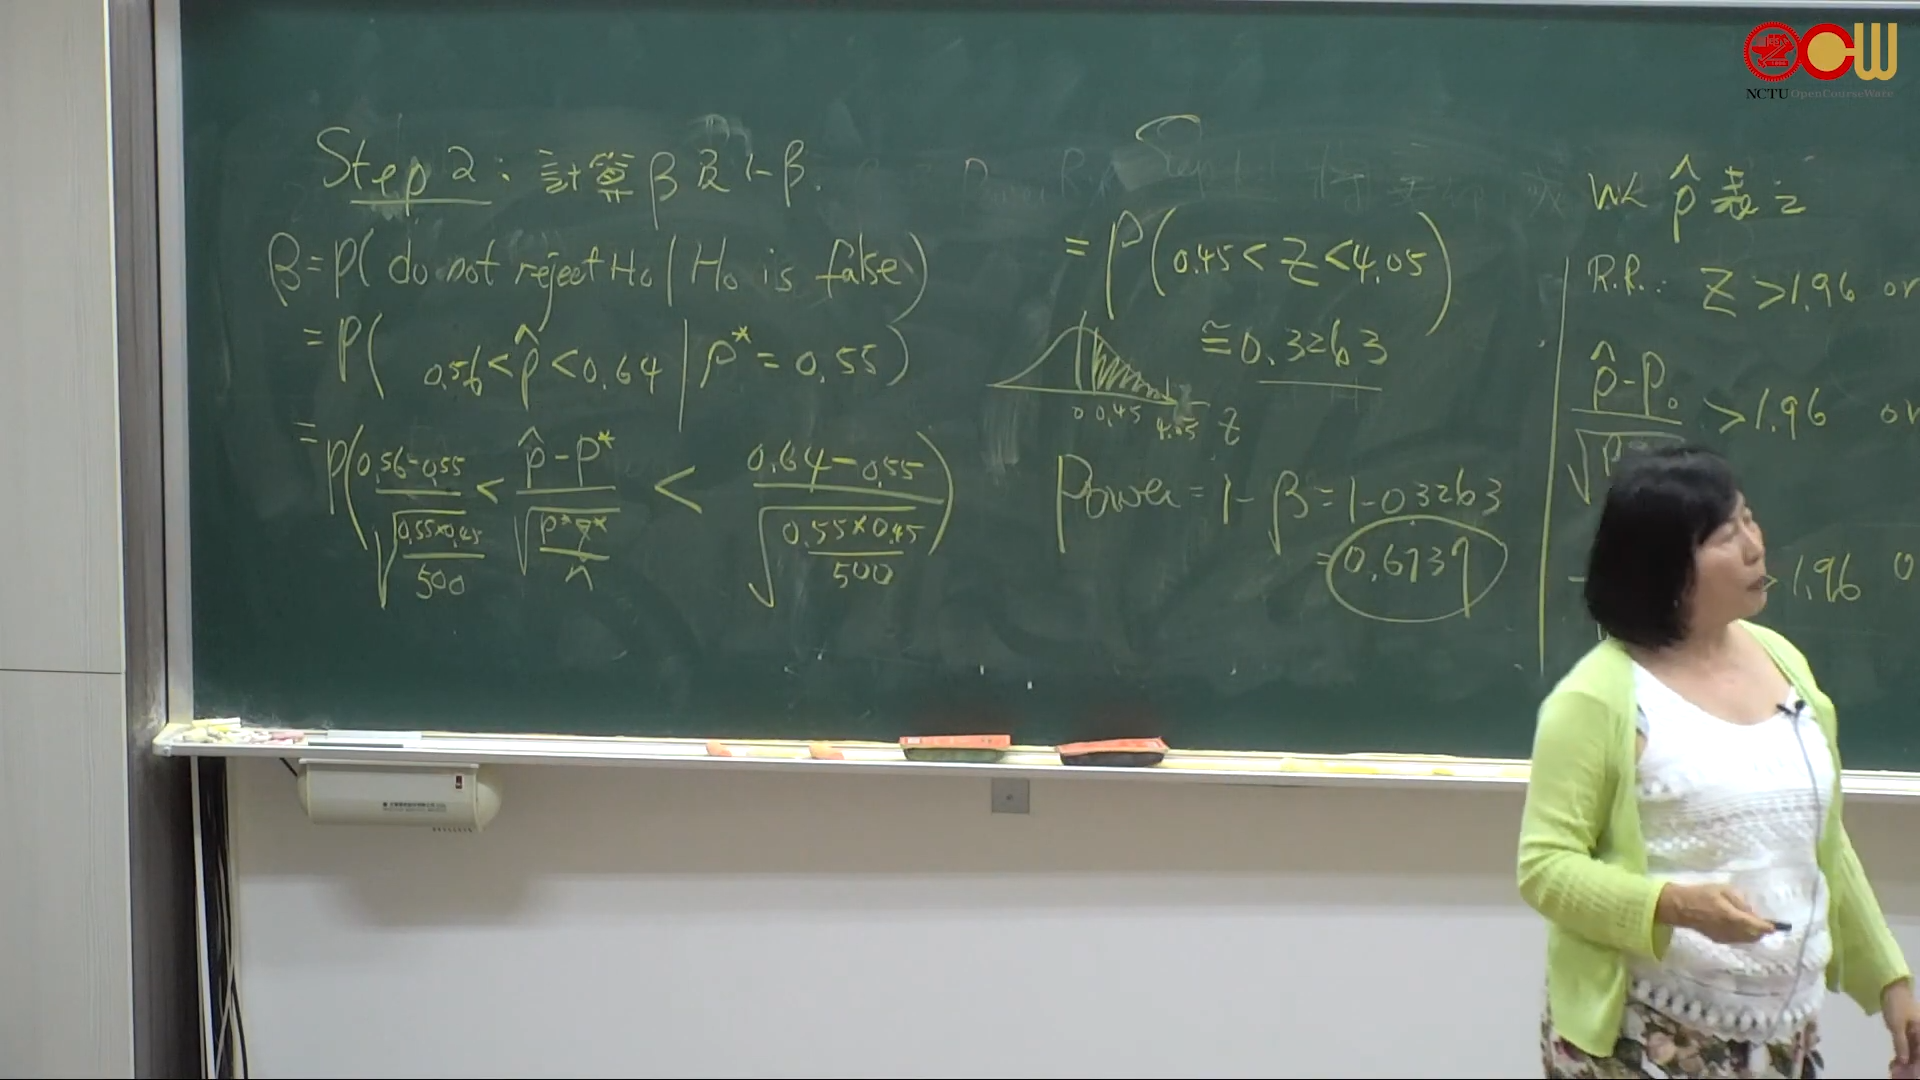 NCTU OpenCourseWare
Step 2 : 計算 β 及 1-β.
β = P( do not reject H₀ | H₀ is false )
= P( 0.56 < p̂ < 0.64 | p* = 0.55 )
= P( (0.56-0.55)/√(0.55×0.45/500) < (p̂-p*)/√(p*q*/n) < (0.64-0.55)/√(0.55×0.45/500) )
= P( 0.45 < Z < 4.05 )
≅ 0.3263
0 0.45 4.05 Z
Power = 1-β = 1-0.3263
= 0.6737
以 p̂ 表之
R.R.: Z > 1.96 or
p̂-p₀ > 1.96 or
> 1.96 o